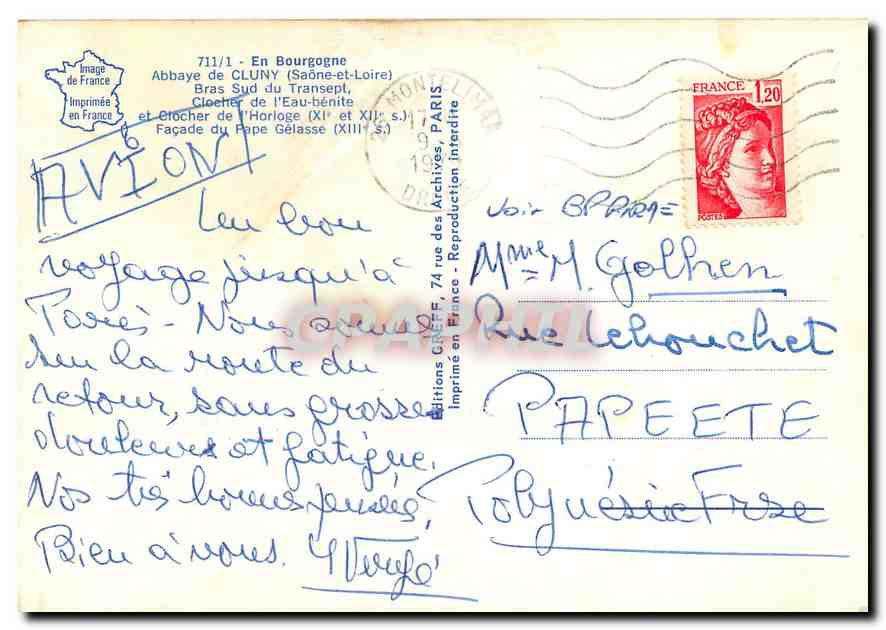 711/1 - En Bourgogne
Abbaye de CLUNY (Saône-et-Loire)
Bras Sud du Transept,
Clocher de l'Eau-bénite
et Clocher de l'Horloge (XIe et XIIe s.)
Façade du Pape Gélasse (XIIIe s.)
Image
de France
Imprimée
en France
AVION
Un bon
voyage jusqu'à
Paris - Nous sommes
sur la route du
retour, sans grosses
douleurs et fatigue.
Nos très bonnes pensées,
Bien à vous.
Editions GREFF, 74 rue des Archives, PARIS
Imprimé en France - Reproduction interdite
26 MONTELIMAR
17
9
DROME
FRANCE
1,20
voir BP
Mme M. Golhen
Rue Lehouchet
PAPEETE
Polynésie Frse
CPAPHIL